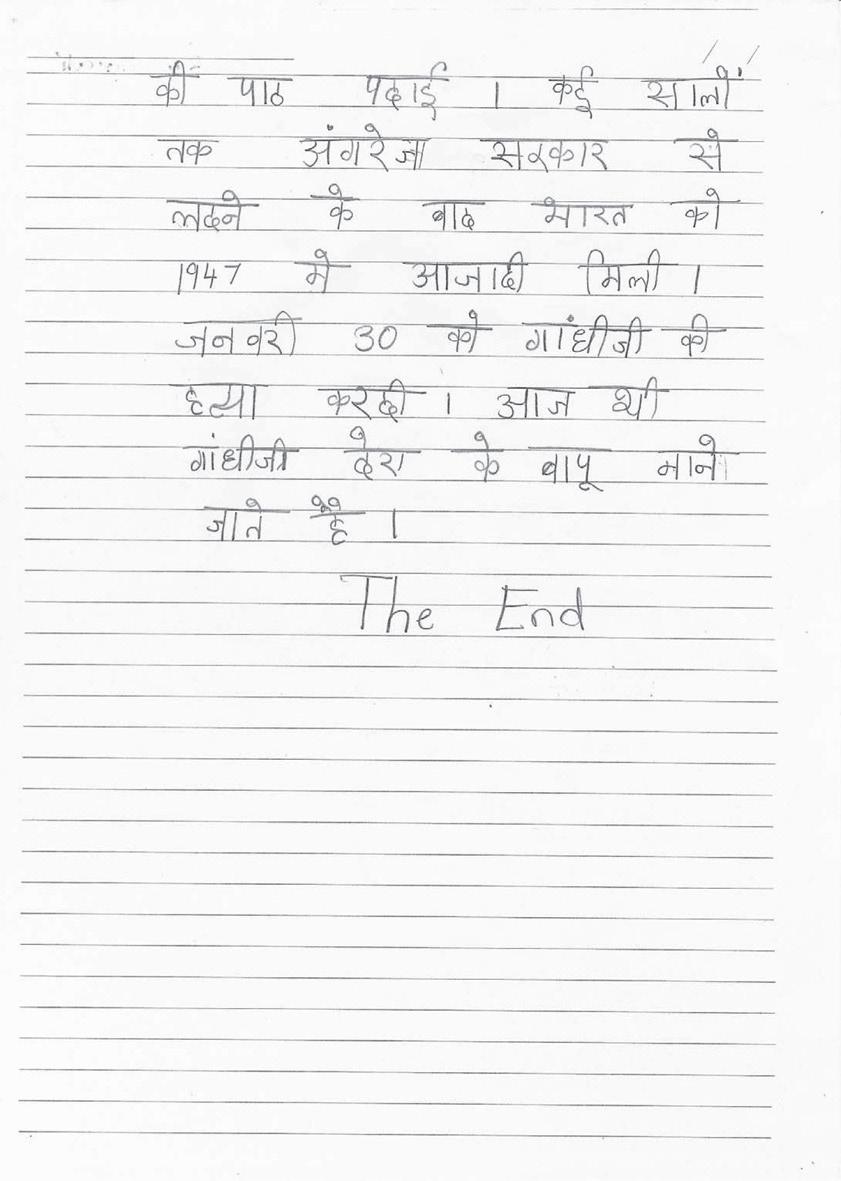 की पाठ पढाई । कई सालों
तक अंगरेजा सरकार से
लढने के बाद भारत को
1947 मे आजादी मिली ।
जनवरी 30 को गांधीजी की
हत्या करदी । आज भी
गांधीजी देश के बापू माने
जाते है ।
The End